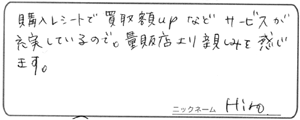 購入レシートで買取額upなどサービスが
充実しているので。量販店より親しみを感じ
ます。
ニックネーム Hiro